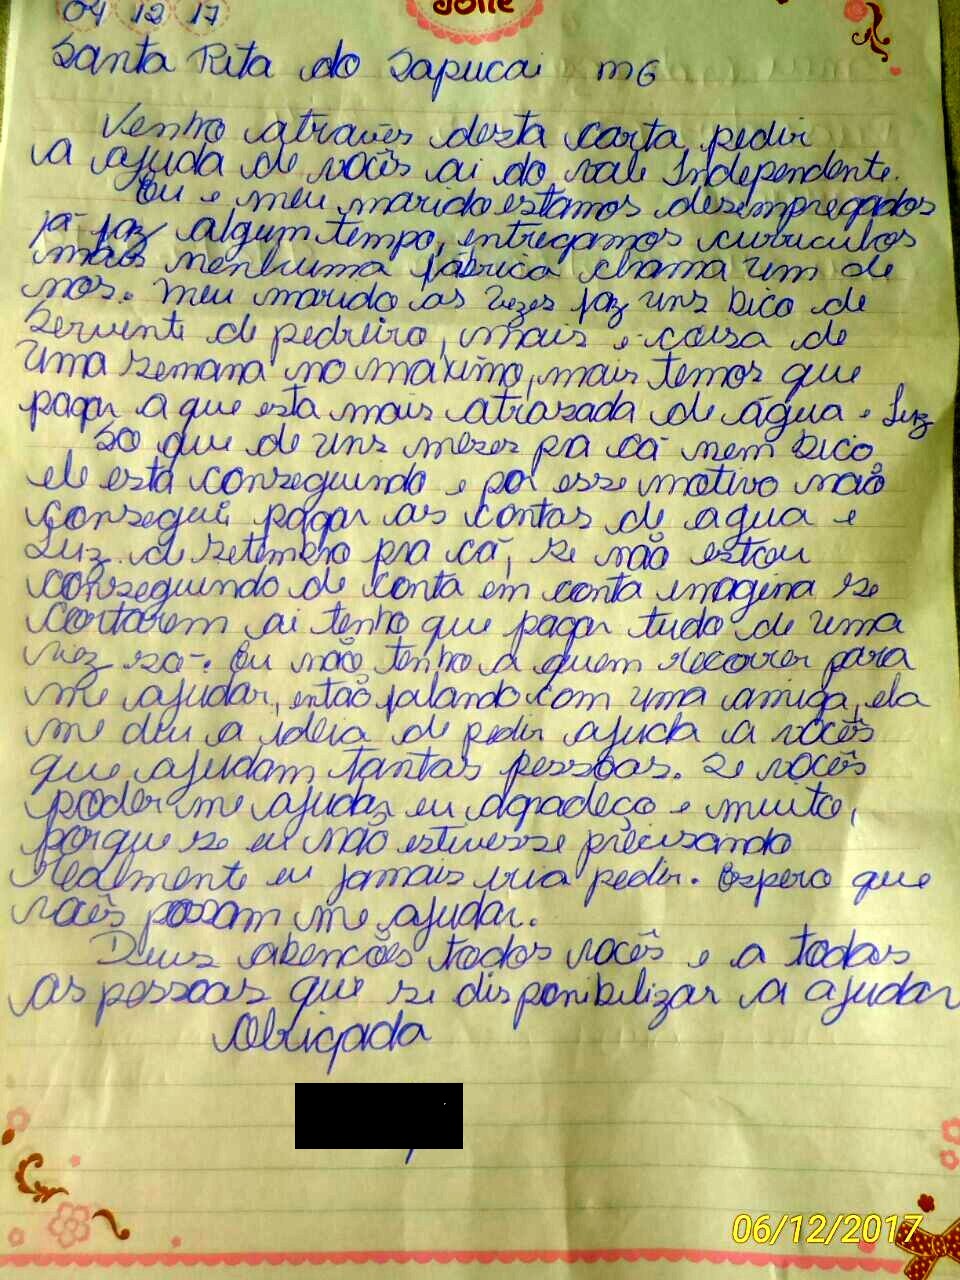 04 12 17
Jolie
Santa Rita do Sapucai MG
Venho atravês desta carta pedir
a ajuda de vocês ai do vale Independente.
Eu e meu marido estamos desempregados
já faz algum tempo, entregamos curriculos
mais nenhuma fábrica chama um de
nos. Meu marido as vezes faz uns bico de
servente de pedreiro, mais e coisa de
uma semana no maximo, mais temos que
pagar a que esta mais atrasada de água e luz
So que de uns mezes pra cá nem bico
ele está conseguindo e por esse motivo não
consegui pagar as contas de agua e
Luz de setembro pra cá, se não estou
conseguindo de conta em conta imagina se
cortarem ai tenho que pagar tudo de uma
vez só. Eu não tenho a quem recorrer para
me ajudar, então falando com uma amiga, ela
me deu a ideia de pedir ajuda a vocês
que ajudam tantas pessoas. Se vocês
poder me ajudar eu agradeço e muito,
porque se eu não estivesse precisando
Realmente eu jamais iria pedir. Espero que
vocês possam me ajudar.
Deus abencões todos vocês e a todas
as pessoas que se disponibilizar a ajudar
Obrigada
06/12/2017